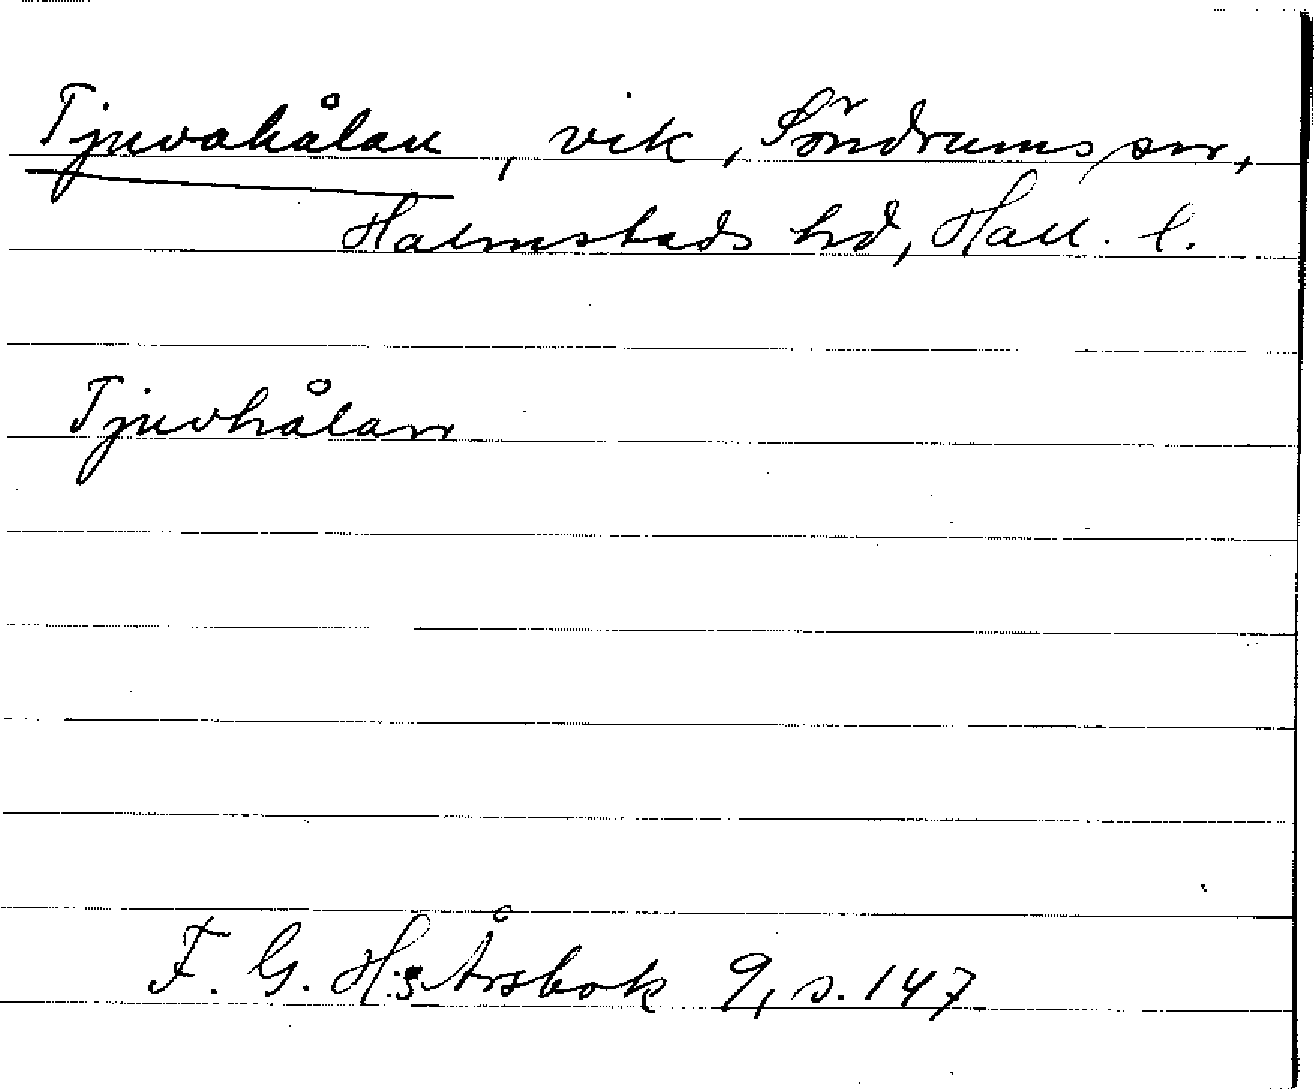 Tjuvahålan, vik, Söndrums sn,
Halmstads hd, Hall. l.
Tjuvhålan
F. G. H:s Årsbok 9, s. 147